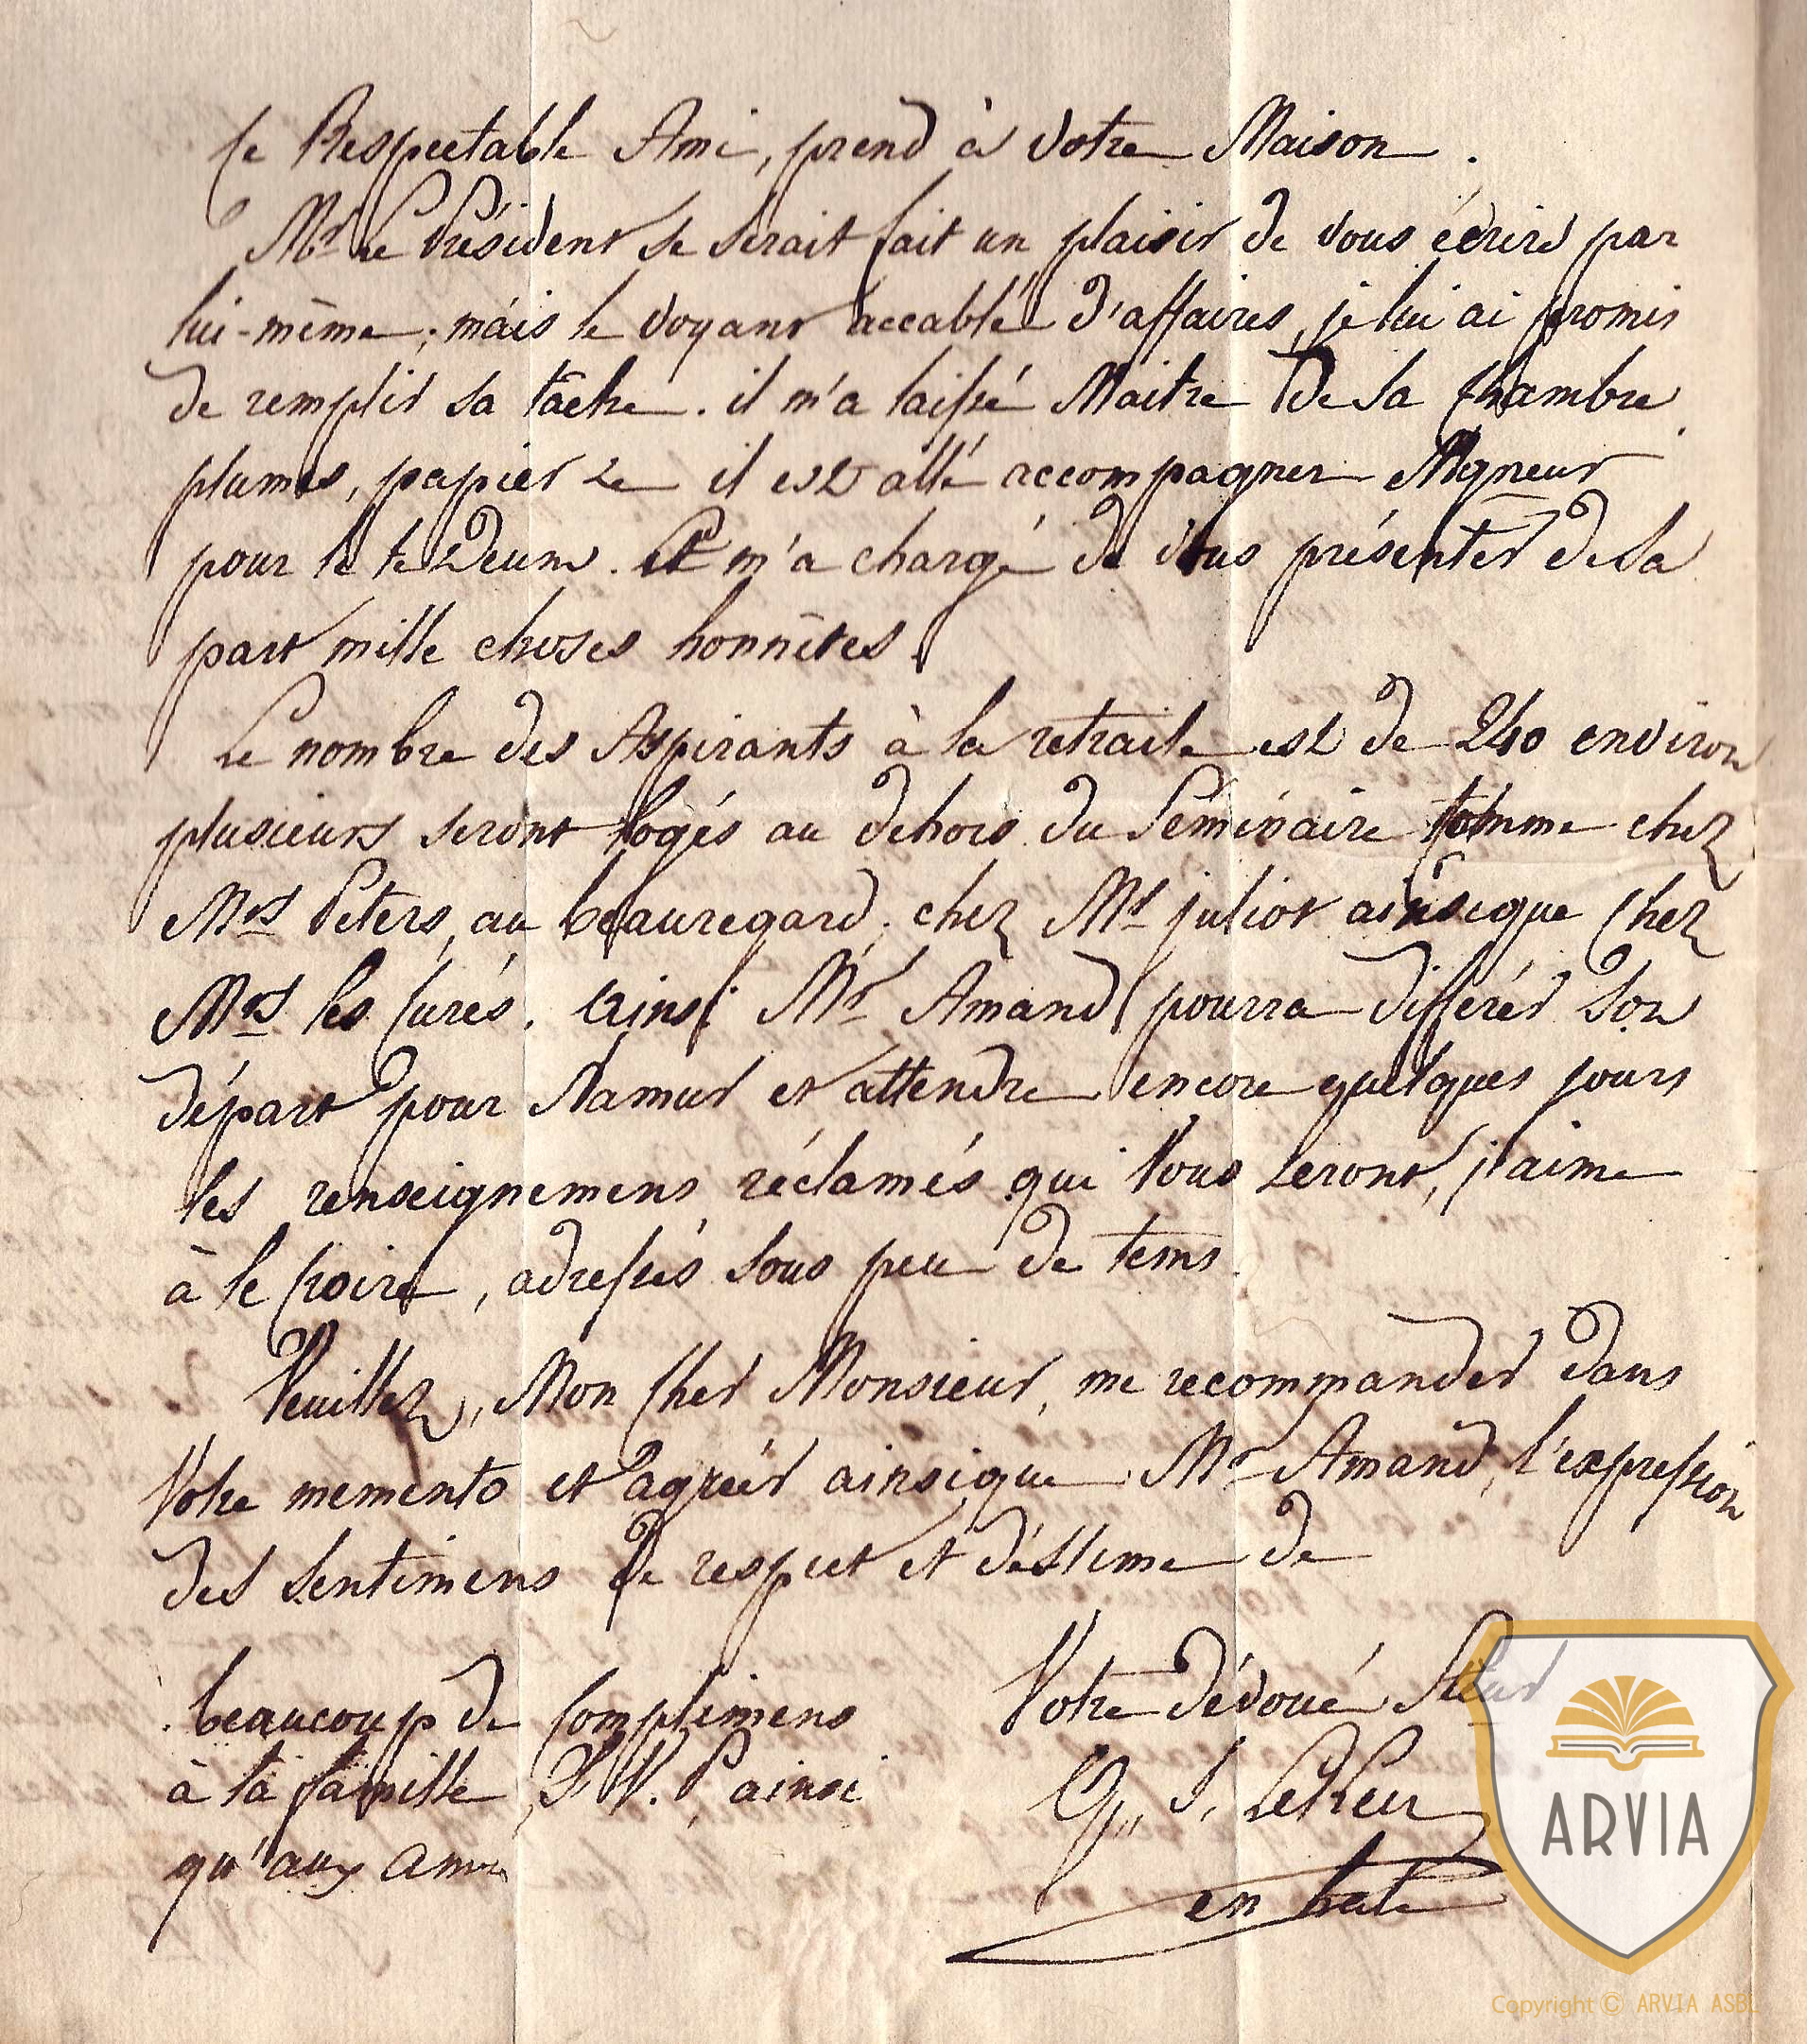 ce Respectable Ami, prend à votre Maison.
Mr le Président se serait fait un plaisir de vous écrire par
lui-même; mais le voyant accablé d'affaires, je lui ai promis
de remplir sa tâche. il m'a laissé Maitre de sa Chambre
plumes, papier &c il est allé accompagner Mgneur
pour le te Deum. et m'a chargé de vous présenter de sa
part mille choses honnêtes.
Le nombre des Aspirants à la retraite est de 240 environ
plusieurs seront logés au dehors du Séminaire comme chez
Mrs Peters, au beauregard; chez Mr juliot ainsique chez
Mrs les Curés. Ainsi Mr Amand pourra différer son
départ pour Namur et attendre encore quelques jours
les renseignemens réclamés qui vous seront, j'aime
à le Croire, adressés sous peu de tems.
Veuillez, Mon Cher Monsieur, me recommander dans
Votre memento et agréer ainsique Mr Amand, l'expression
des sentimens de respect et d'éstime de
Votre dévoué
G,, J. LeKeu
en hate
beaucoup de Complimens
à la famille, S. V. P, ainsi
qu'aux amis
ARVIA
Copyright © ARVIA ASBL